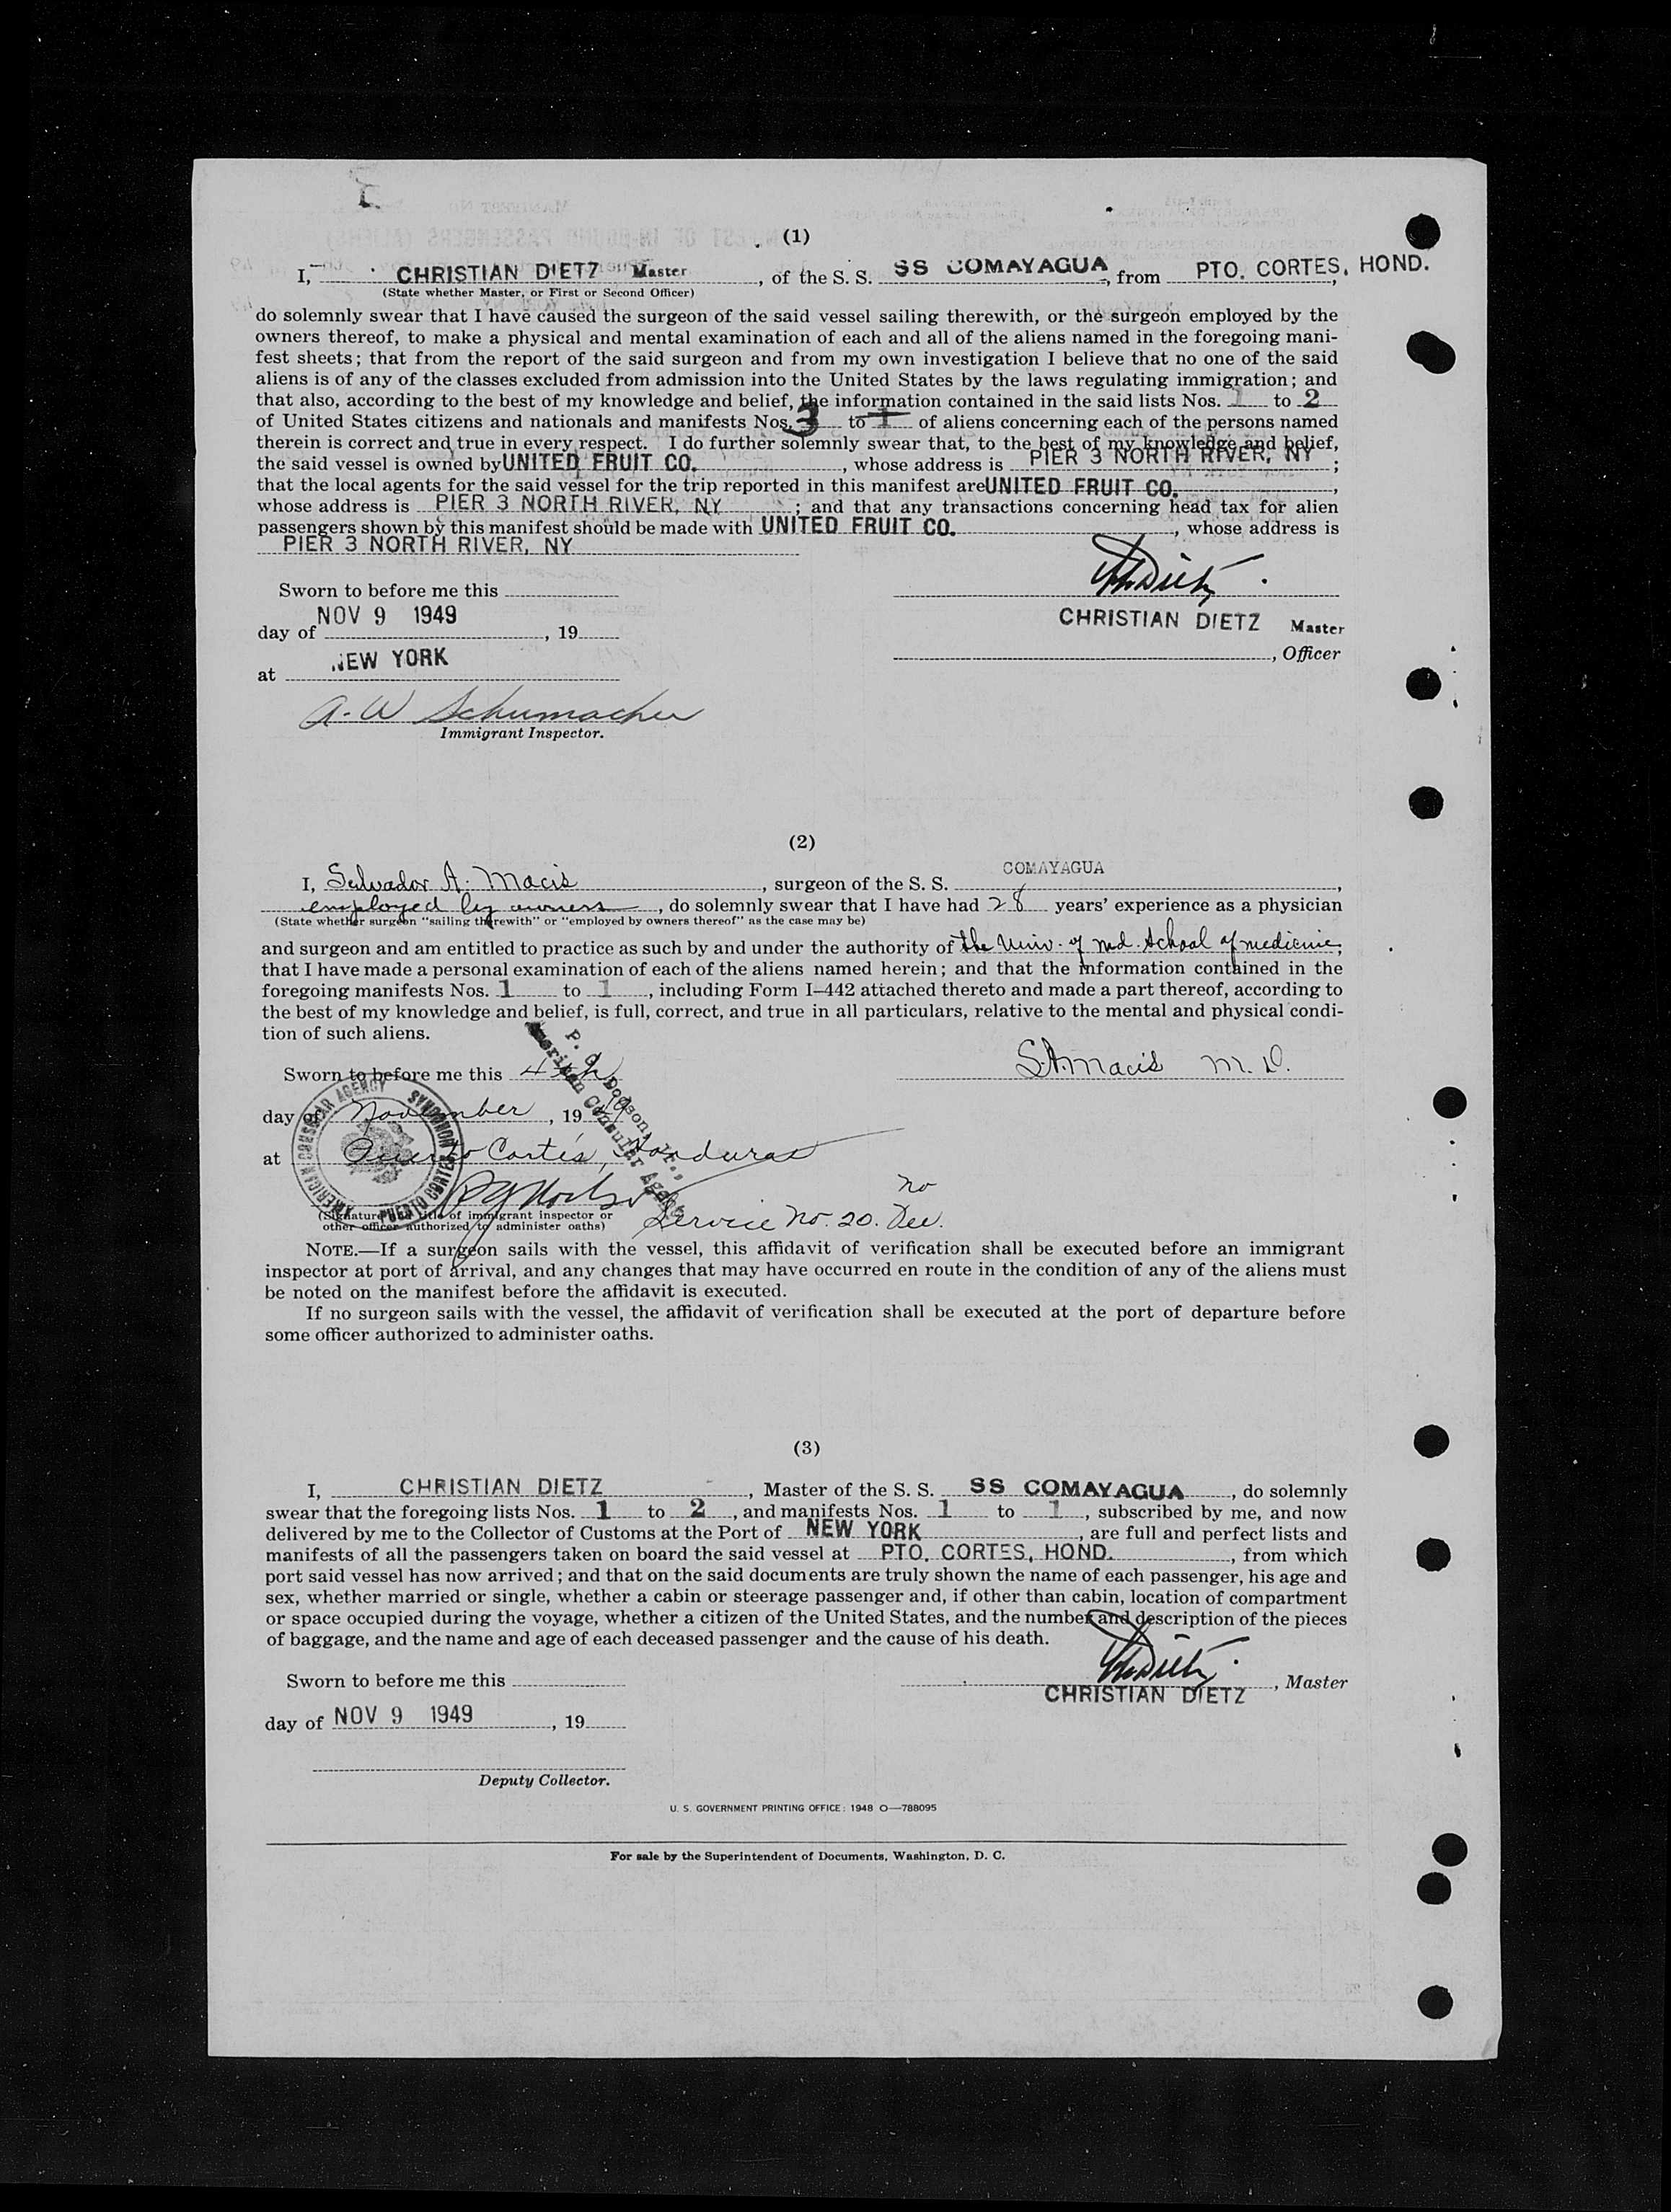 (1)
I, CHRISTIAN DIETZ Master, of the S. S. SS COMAYAGUA, from PTO. CORTES, HOND.,
(State whether Master, or First or Second Officer)
do solemnly swear that I have caused the surgeon of the said vessel sailing therewith, or the surgeon employed by the
owners thereof, to make a physical and mental examination of each and all of the aliens named in the foregoing mani-
fest sheets; that from the report of the said surgeon and from my own investigation I believe that no one of the said
aliens is of any of the classes excluded from admission into the United States by the laws regulating immigration; and
that also, according to the best of my knowledge and belief, the information contained in the said lists Nos. 1 to 2
of United States citizens and nationals and manifests Nos. 3 to 1 of aliens concerning each of the persons named
therein is correct and true in every respect. I do further solemnly swear that, to the best of my knowledge and belief,
the said vessel is owned by UNITED FRUIT CO., whose address is PIER 3 NORTH RIVER, NY;
that the local agents for the said vessel for the trip reported in this manifest are UNITED FRUIT CO.,
whose address is PIER 3 NORTH RIVER, NY; and that any transactions concerning head tax for alien
passengers shown by this manifest should be made with UNITED FRUIT CO., whose address is
PIER 3 NORTH RIVER, NY
Sworn to before me this
NOV 9 1949
CHRISTIAN DIETZ Master
day of , 19
, Officer
at NEW YORK
A. W Schumacher
Immigrant Inspector.
(2)
I, Salvador A. Macis, surgeon of the S. S. COMAYAGUA,
employed by owners, do solemnly swear that I have had 28 years' experience as a physician
(State whether surgeon "sailing therewith" or "employed by owners thereof" as the case may be)
and surgeon and am entitled to practice as such by and under the authority of the Univ. of Md. School of medicine,
that I have made a personal examination of each of the aliens named herein; and that the information contained in the
foregoing manifests Nos. 1 to 1, including Form I–442 attached thereto and made a part thereof, according to
the best of my knowledge and belief, is full, correct, and true in all particulars, relative to the mental and physical condi-
tion of such aliens.
S.A. Macis M. D.
Sworn to before me this 4th
day of November, 1949
at Puerto Cortés, Honduras
American Consular Agent
AMERICAN CONSULAR AGENCY
PUERTO CORTES HONDURAS
(Signature and title of immigrant inspector or
other officer authorized to administer oaths)
Service No. 20. no
NOTE.—If a surgeon sails with the vessel, this affidavit of verification shall be executed before an immigrant
inspector at port of arrival, and any changes that may have occurred en route in the condition of any of the aliens must
be noted on the manifest before the affidavit is executed.
If no surgeon sails with the vessel, the affidavit of verification shall be executed at the port of departure before
some officer authorized to administer oaths.
(3)
I, CHRISTIAN DIETZ, Master of the S. S. SS COMAYAGUA, do solemnly
swear that the foregoing lists Nos. 1 to 2, and manifests Nos. 1 to 1, subscribed by me, and now
delivered by me to the Collector of Customs at the Port of NEW YORK, are full and perfect lists and
manifests of all the passengers taken on board the said vessel at PTO. CORTES, HOND., from which
port said vessel has now arrived; and that on the said documents are truly shown the name of each passenger, his age and
sex, whether married or single, whether a cabin or steerage passenger and, if other than cabin, location of compartment
or space occupied during the voyage, whether a citizen of the United States, and the number and description of the pieces
of baggage, and the name and age of each deceased passenger and the cause of his death.
Sworn to before me this
, Master
CHRISTIAN DIETZ
day of NOV 9 1949, 19
Deputy Collector.
U. S. GOVERNMENT PRINTING OFFICE: 1948 O—788095
For sale by the Superintendent of Documents, Washington, D. C.